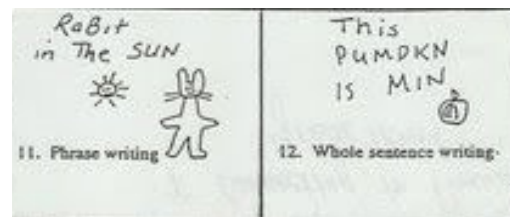 RaBit
in The SUN
11. Phrase writing
This
PUMPKN
IS MIN
12. Whole sentence writing.